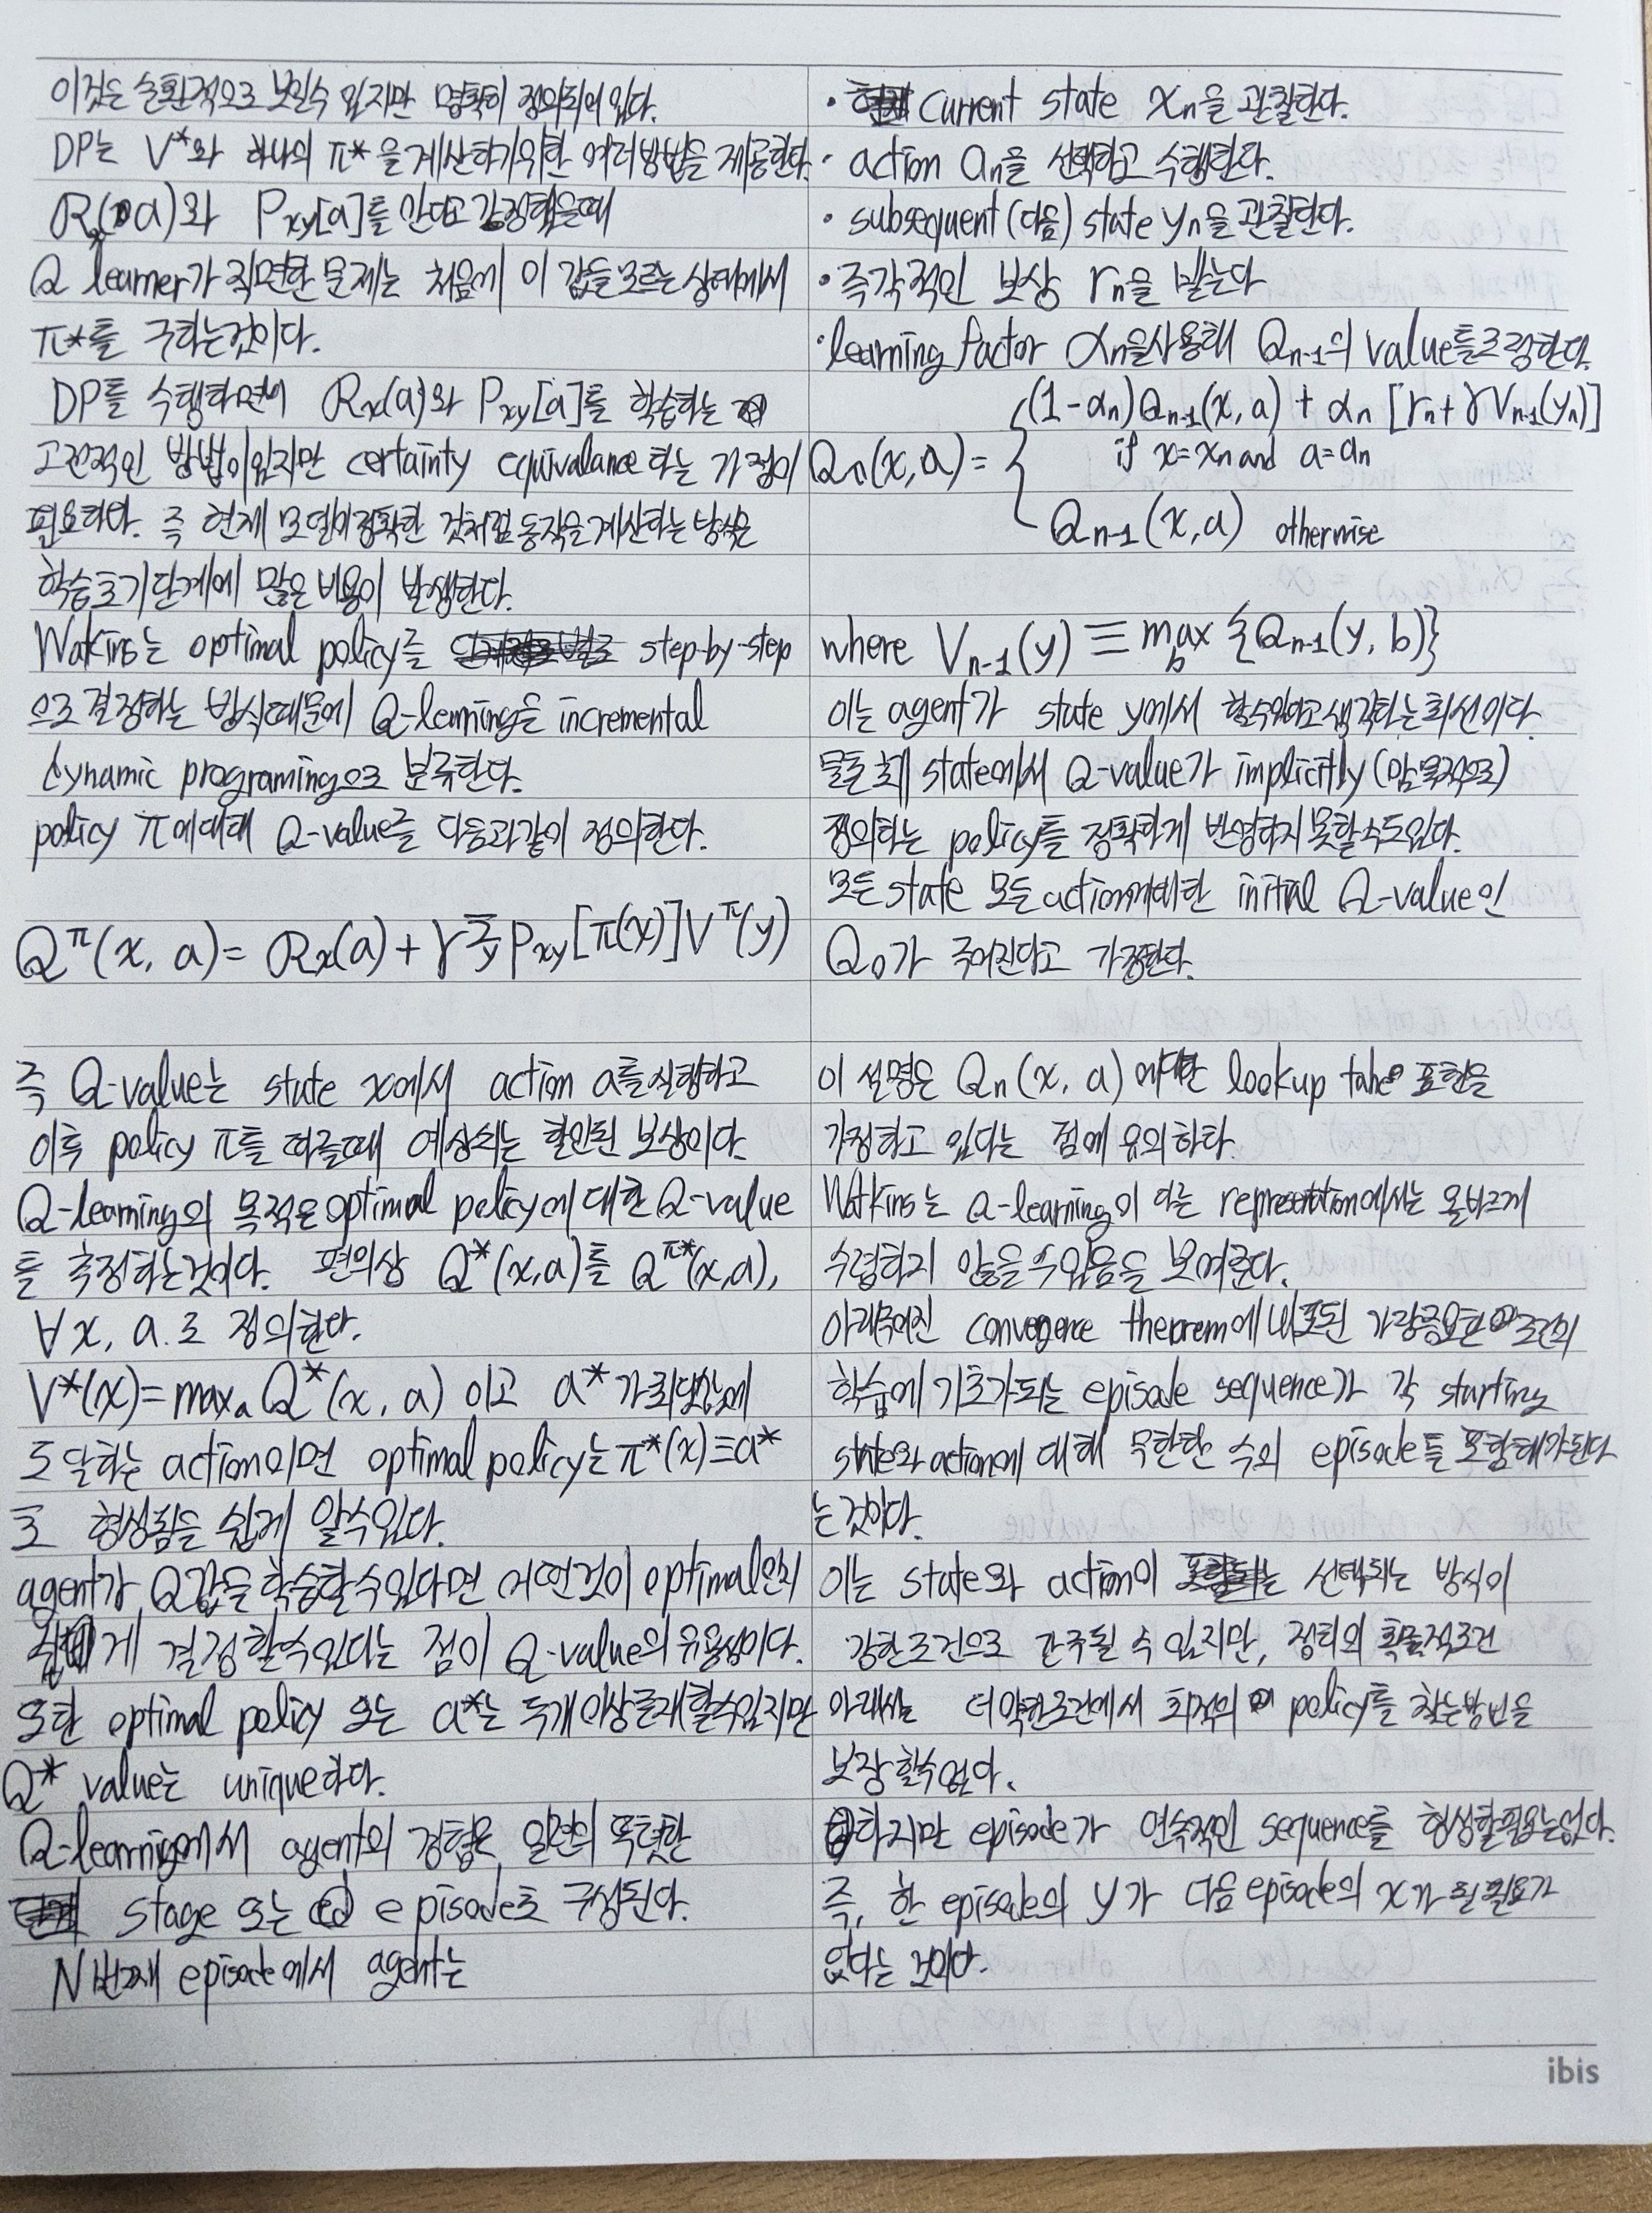 이것은 순환적으로 보일수 있지만 명확히 정의되어 있다.
DP는 V*와 하나의 π*을 계산하기위한 여러방법을 제공한다.
Rx(a)와 Pxy[a]를 안다고 가정했을때
Q learner가 직면한 문제는 처음에 이 값들을 모르는 상태에서
π*를 구하는것이다.
DP를 수행하면서 Rx(a)와 Pxy[a]를 학습하는
고전적인 방법이있지만 certainty equivalance라는 가정이
필요하다. 즉 현재 모델이정확한 것처럼 동작을계산하는 방식은
학습초기단계에 많은 비용이 발생한다.
Watkins는 optimal policy를 step-by-step
으로 결정하는 방식때문에 Q-learning을 incremental
dynamic programing으로 분류한다.
policy π에대해 Q-value를 다음과같이 정의한다.
Qπ(x, a) = Rx(a) + γ Σy Pxy[π(x)]Vπ(y)
즉 Q-value는 state x에서 action a를실행하고
이후 policy π를 따를때 예상되는 할인된 보상이다.
Q-learning의 목적은optimal policy에 대한 Q-value
를 추정하는것이다. 편의상 Q*(x,a)를 Qπ*(x,a),
∀x, a.로 정의한다.
V*(x)=maxa Q*(x, a) 이고 a*가최댓값에
도달하는 action이면 optimal policy는 π*(x)≡a*
로 형성됨을 쉽게 알수있다.
agent가 Q값을 학습할수있다면 어떤것이 optimal인지
쉽게 결정할수있다는 점이 Q-value의유용성이다.
또한 optimal policy 또는 a*는 두개이상존재할수있지만
Q* value는 unique하다.
Q-learning에서 agent의 경험은 일련의 뚜렷한
stage 또는 episode로 구성된다.
N번째 episode에서 agent는
· current state xn을 관찰한다.
· action an을 선택하고 수행한다.
· subsequent(다음) state yn을 관찰한다.
· 즉각적인 보상 rn을 받는다
· learning factor αn을사용해 Qn-1의 value를조정한다.
Qn(x,a) = { (1-αn)Qn-1(x,a) + αn [rn+γVn-1(yn)]
if x=xn and a=an
Qn-1(x,a) otherwise
where Vn-1(y) ≡ maxb {Qn-1(y, b)}
이는 agent가 state y에서 할수있다고생각하는최선이다.
물론 초기 state에서 Q-value가 implicitly(암묵적으로)
정의하는 policy를 정확하게 반영하지못할수도있다.
모든state 모든action에대한 initial Q-value인
Q0가 주어진다고 가정한다.
이 설명은 Qn(x, a)에대한 lookup table 표현을
가정하고 있다는 점에 유의하라.
Watkins는 Q-learning이 다른 representation에서는 올바르게
수렴하지 않을수있음을 보여준다.
아래주어진 convergence theorem에내포된 가장중요한 조건의
학습에 기초가되는 episode sequence가 각 starting
state와 action에 대해 무한한 수의 episode를 포함해야된다
는것이다.
이는 state와 action이 선택되는 방식이
강한조건으로 간주될 수 있지만, 정리의 확률적조건
아래서는 더약한조건에서 최적의 policy를 찾는방법을
보장할수없다.
하지만 episode가 연속적인 sequence를 형성할필요는없다.
즉, 한 episode의 y가 다음episode의 x가 될 필요가
없다는 것이다.
ibis